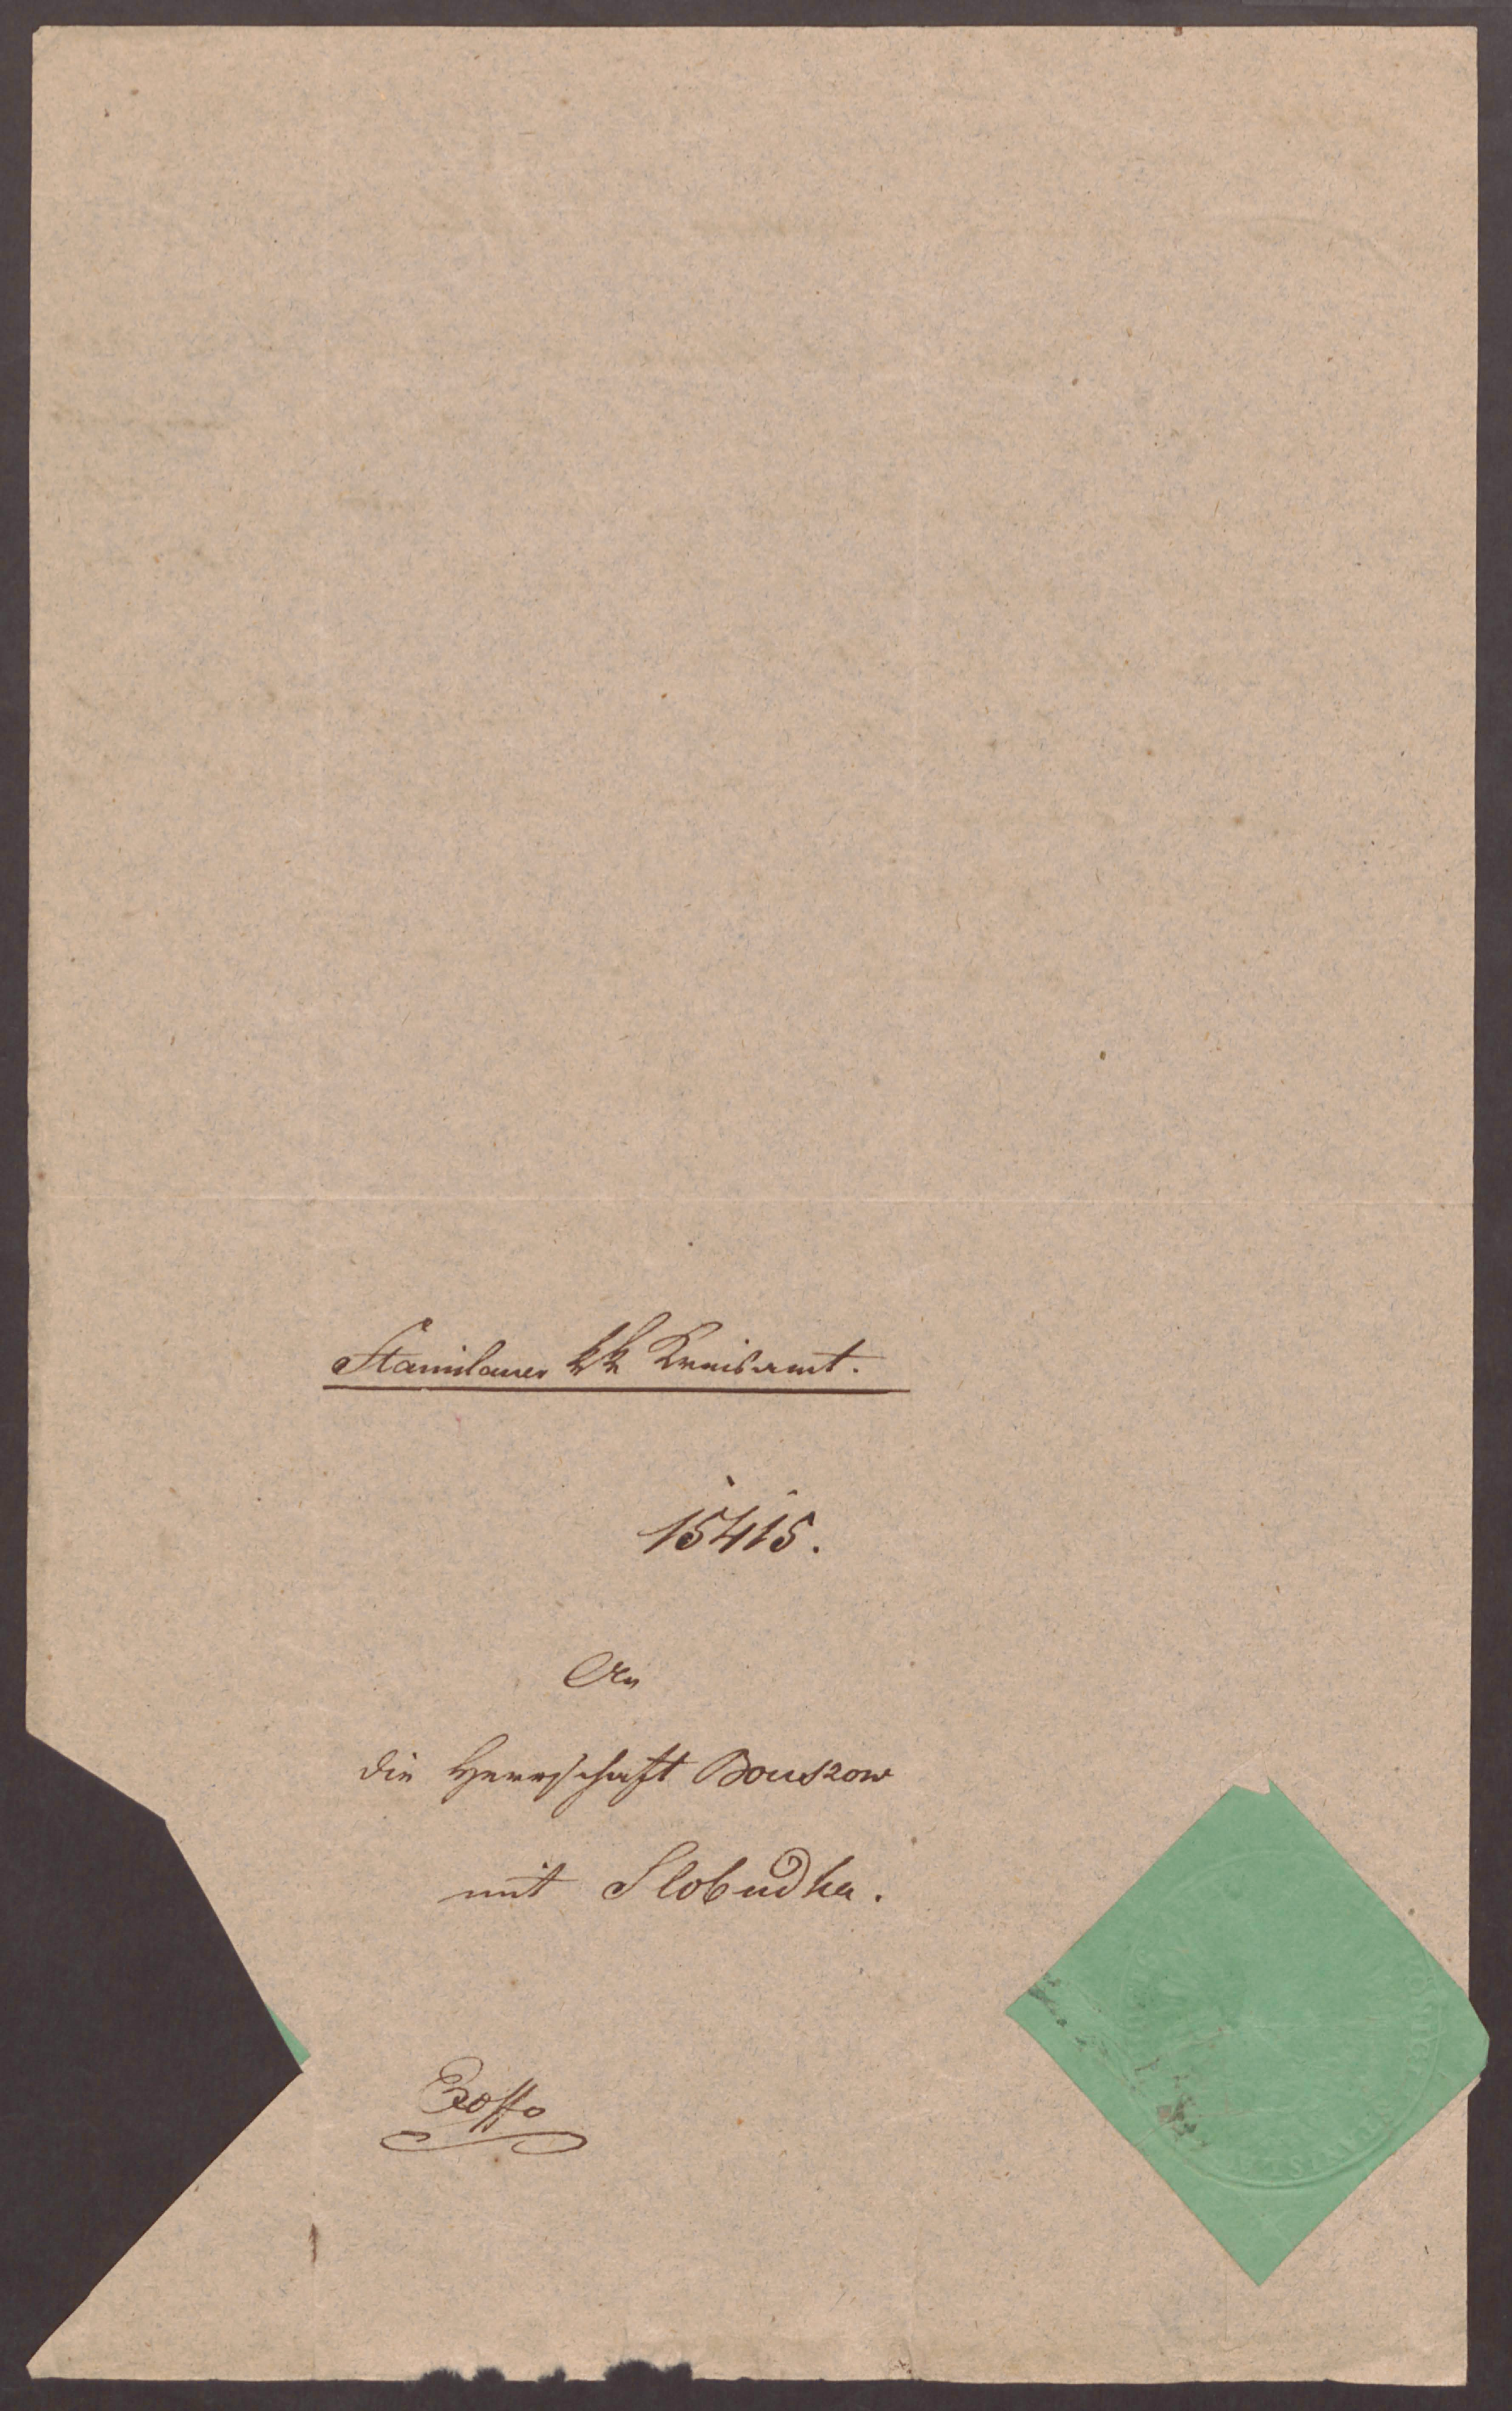 Stanislauer kk Kreisamt.
15415.
An
die Herrschaft Bouszow
mit Slobudka.